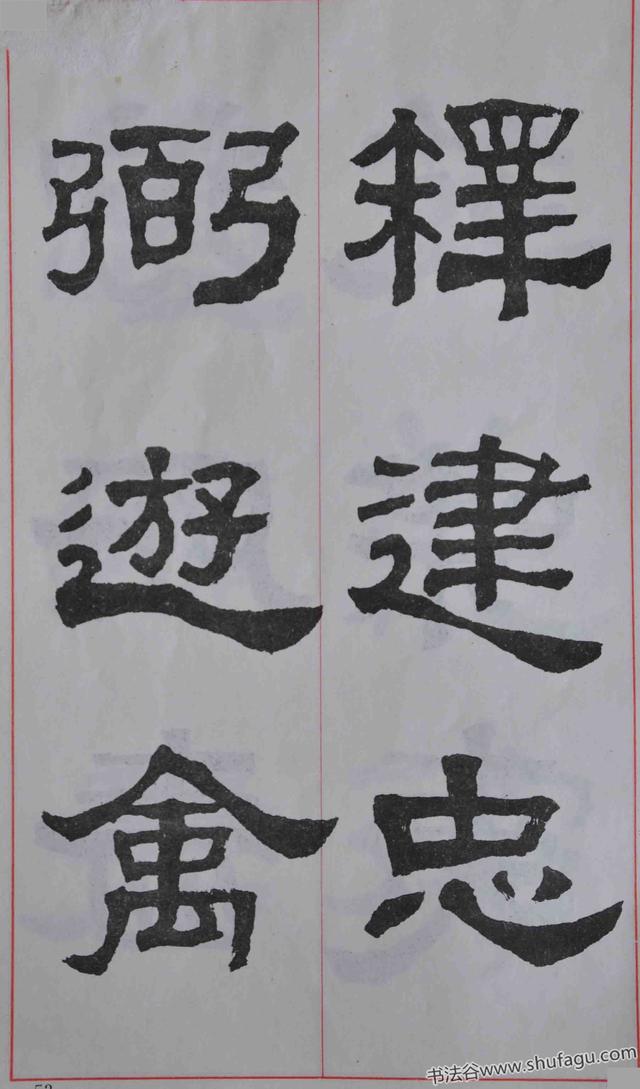 釋建忠
弼遊禽
書法谷www.shufagu.com